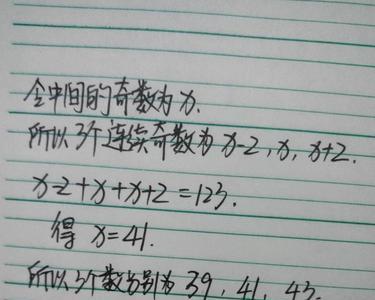 令中间的奇数为x.
所以3个连续奇数为x-2, x, x+2.
x-2+x+x+2=123.
得 x=41.
所以3个数分别为 39, 41, 43.